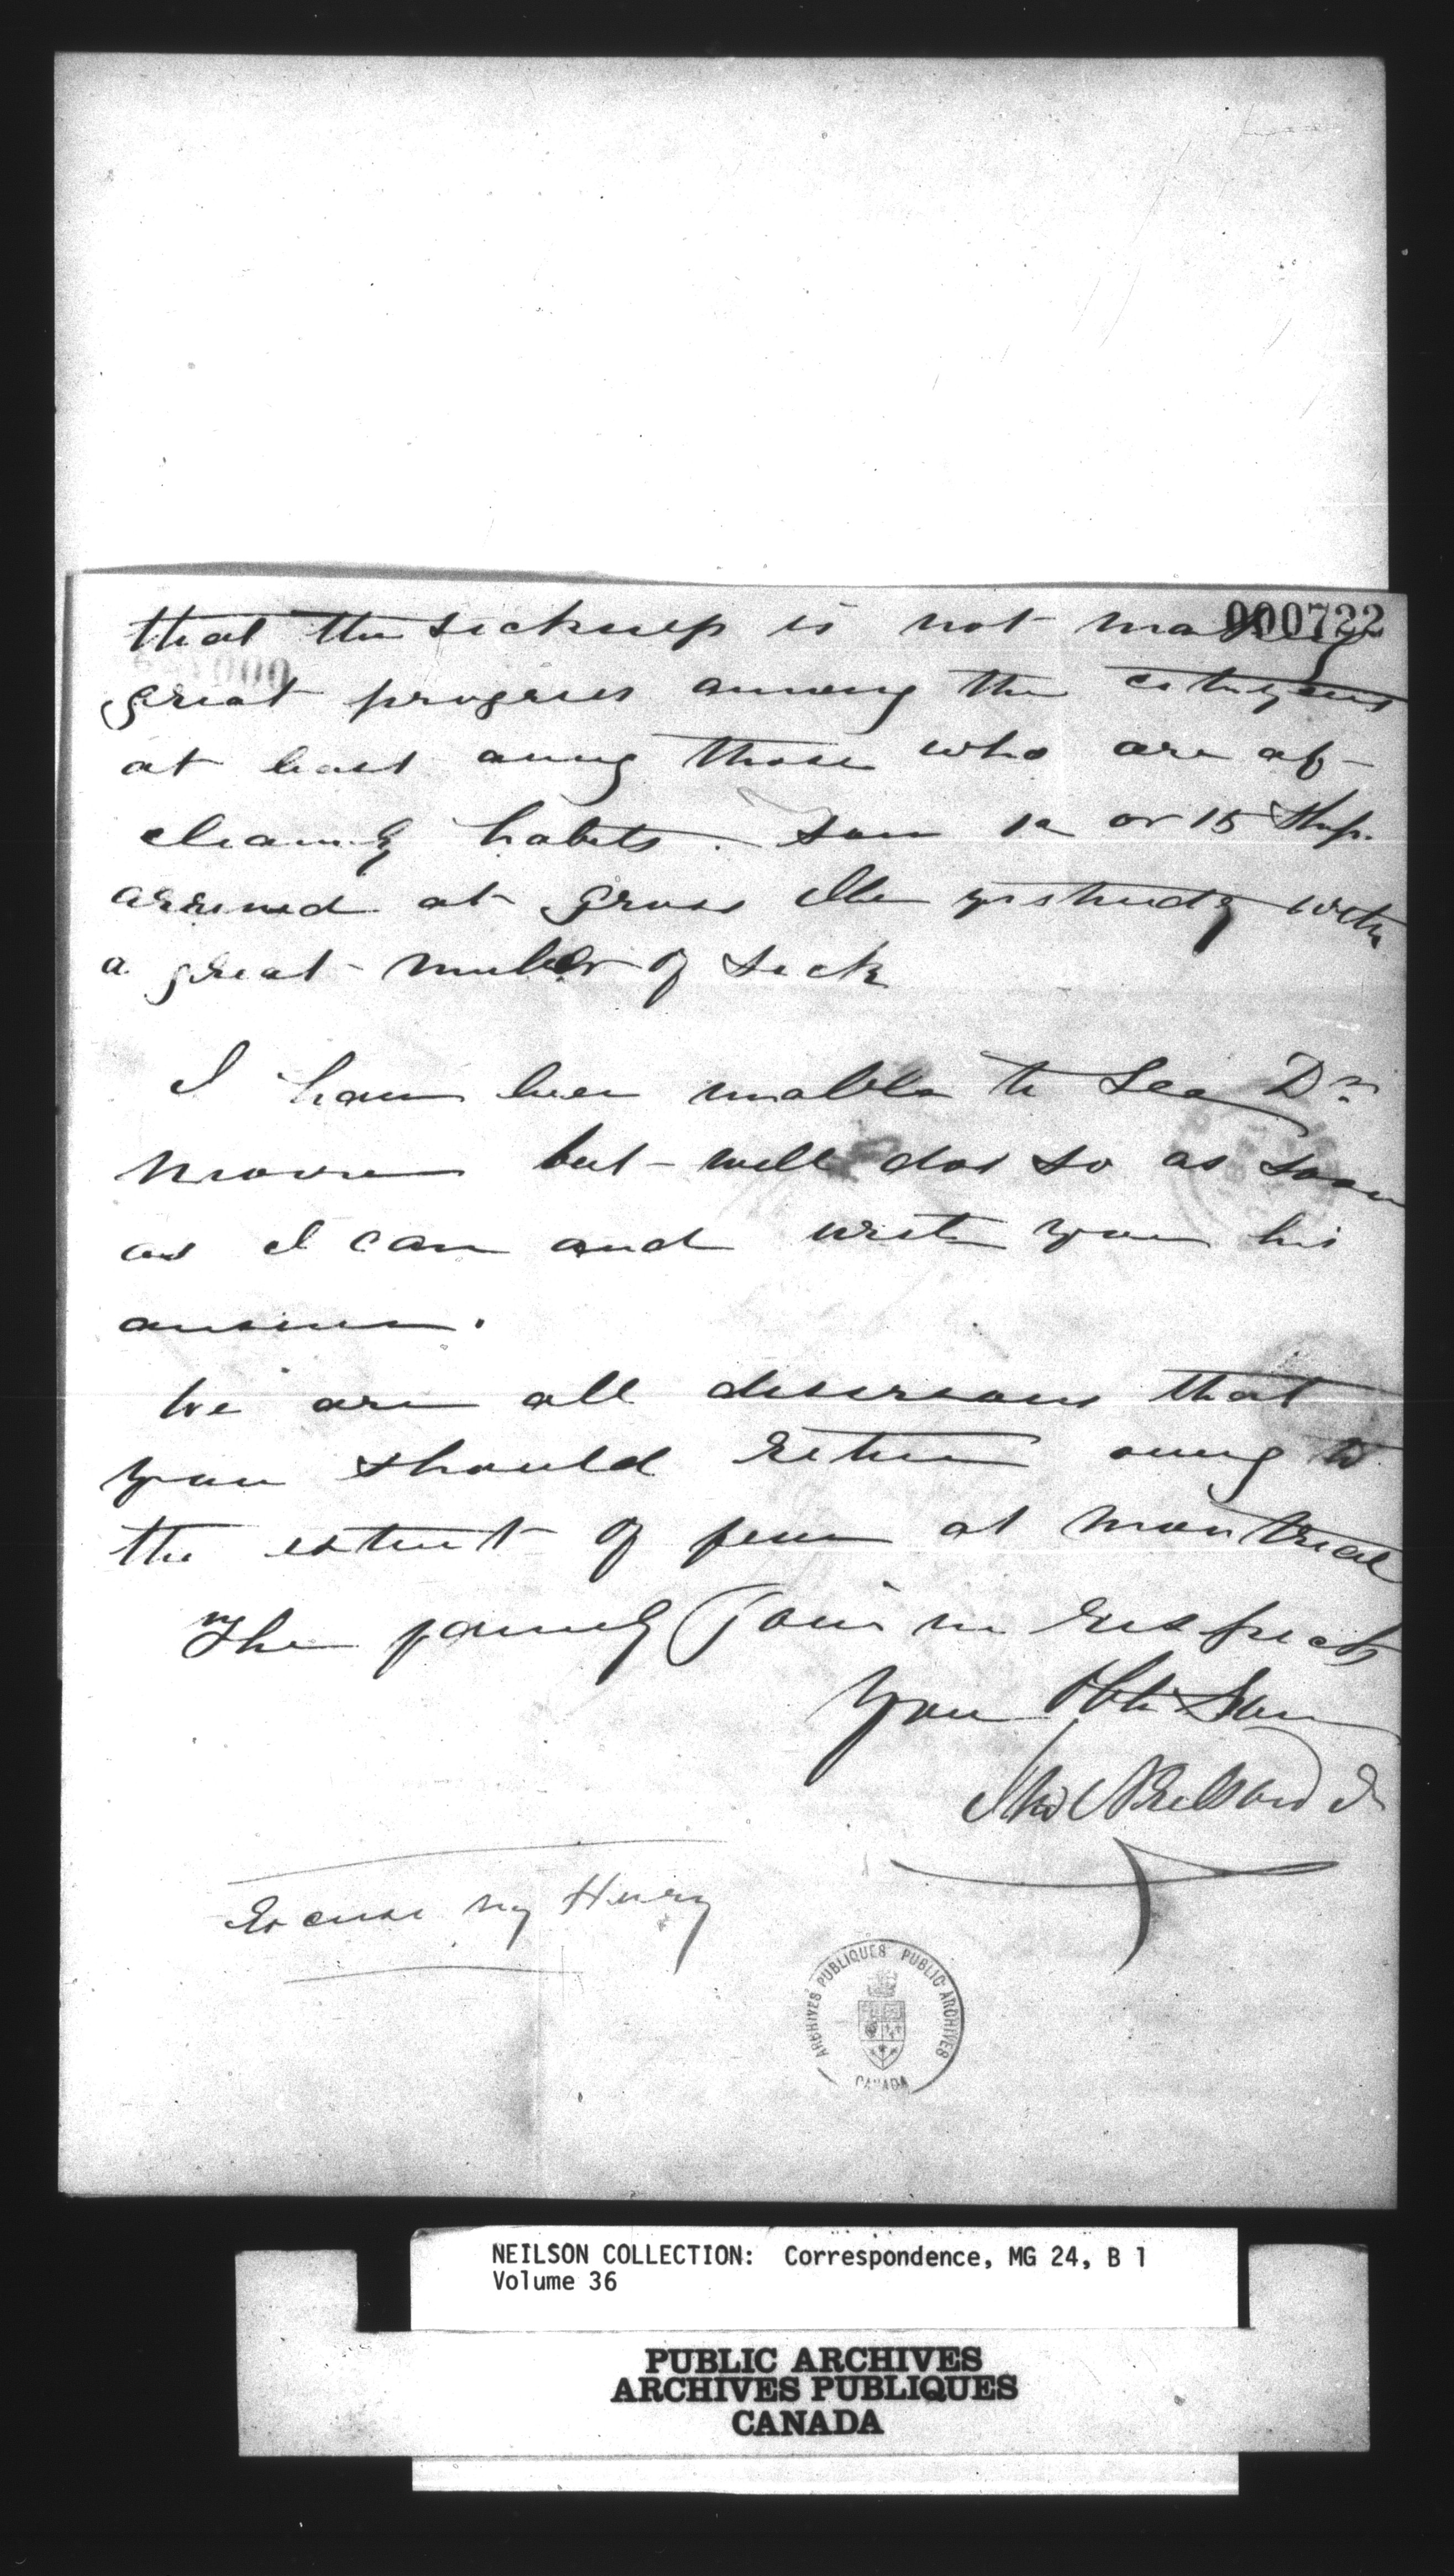 000722
that the sickness is not making
great progress among the citizens
at least among those who are of
cleanly habits. Some 12 or 15 Ships
arrived at Gross Isle yesterday with
a great number of sick
I have been unable to see Dr
Moore but will do so as soon
as I can and write you his
answer.
We are all desireous that
you should return owing to
the extent of fever at Montreal
The family join in respects
Your Obt Son
Jno Neilson Jr
Excuse my Hurry
ARCHIVES PUBLIQUES PUBLIC ARCHIVES
CANADA
NEILSON COLLECTION: Correspondence, MG 24, B 1
Volume 36
PUBLIC ARCHIVES
ARCHIVES PUBLIQUES
CANADA